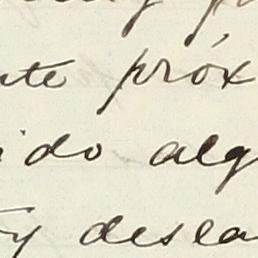 nte próx
ido alg
y desea